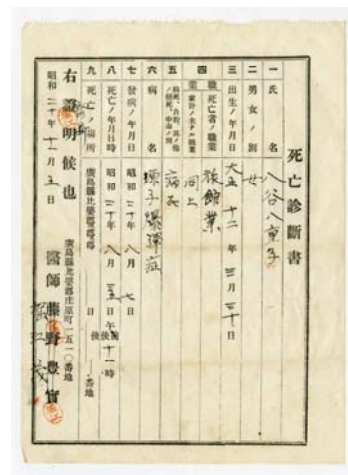 死亡診断書
一 氏名 八谷八重子
二 男女ノ別 女
三 出生ノ年月日 大正十二年三月三十日
四 職業 死亡者ノ職業 旅館業
家計ノ主ナル職業 同上
五 病死、自殺、其ノ他ノ変死、中毒ノ別 病死
六 病名 原子爆弾症
七 発病ノ年月日 昭和二十年八月七日
八 死亡ノ年月日時 昭和二十年八月三五日午前後十一時
九 死亡ノ場所 廣島縣比婆郡 番地
右證明候也
昭和二十年十一月五日
廣島縣比婆郡庄原町一五一〇番地
醫師 藤野豊實